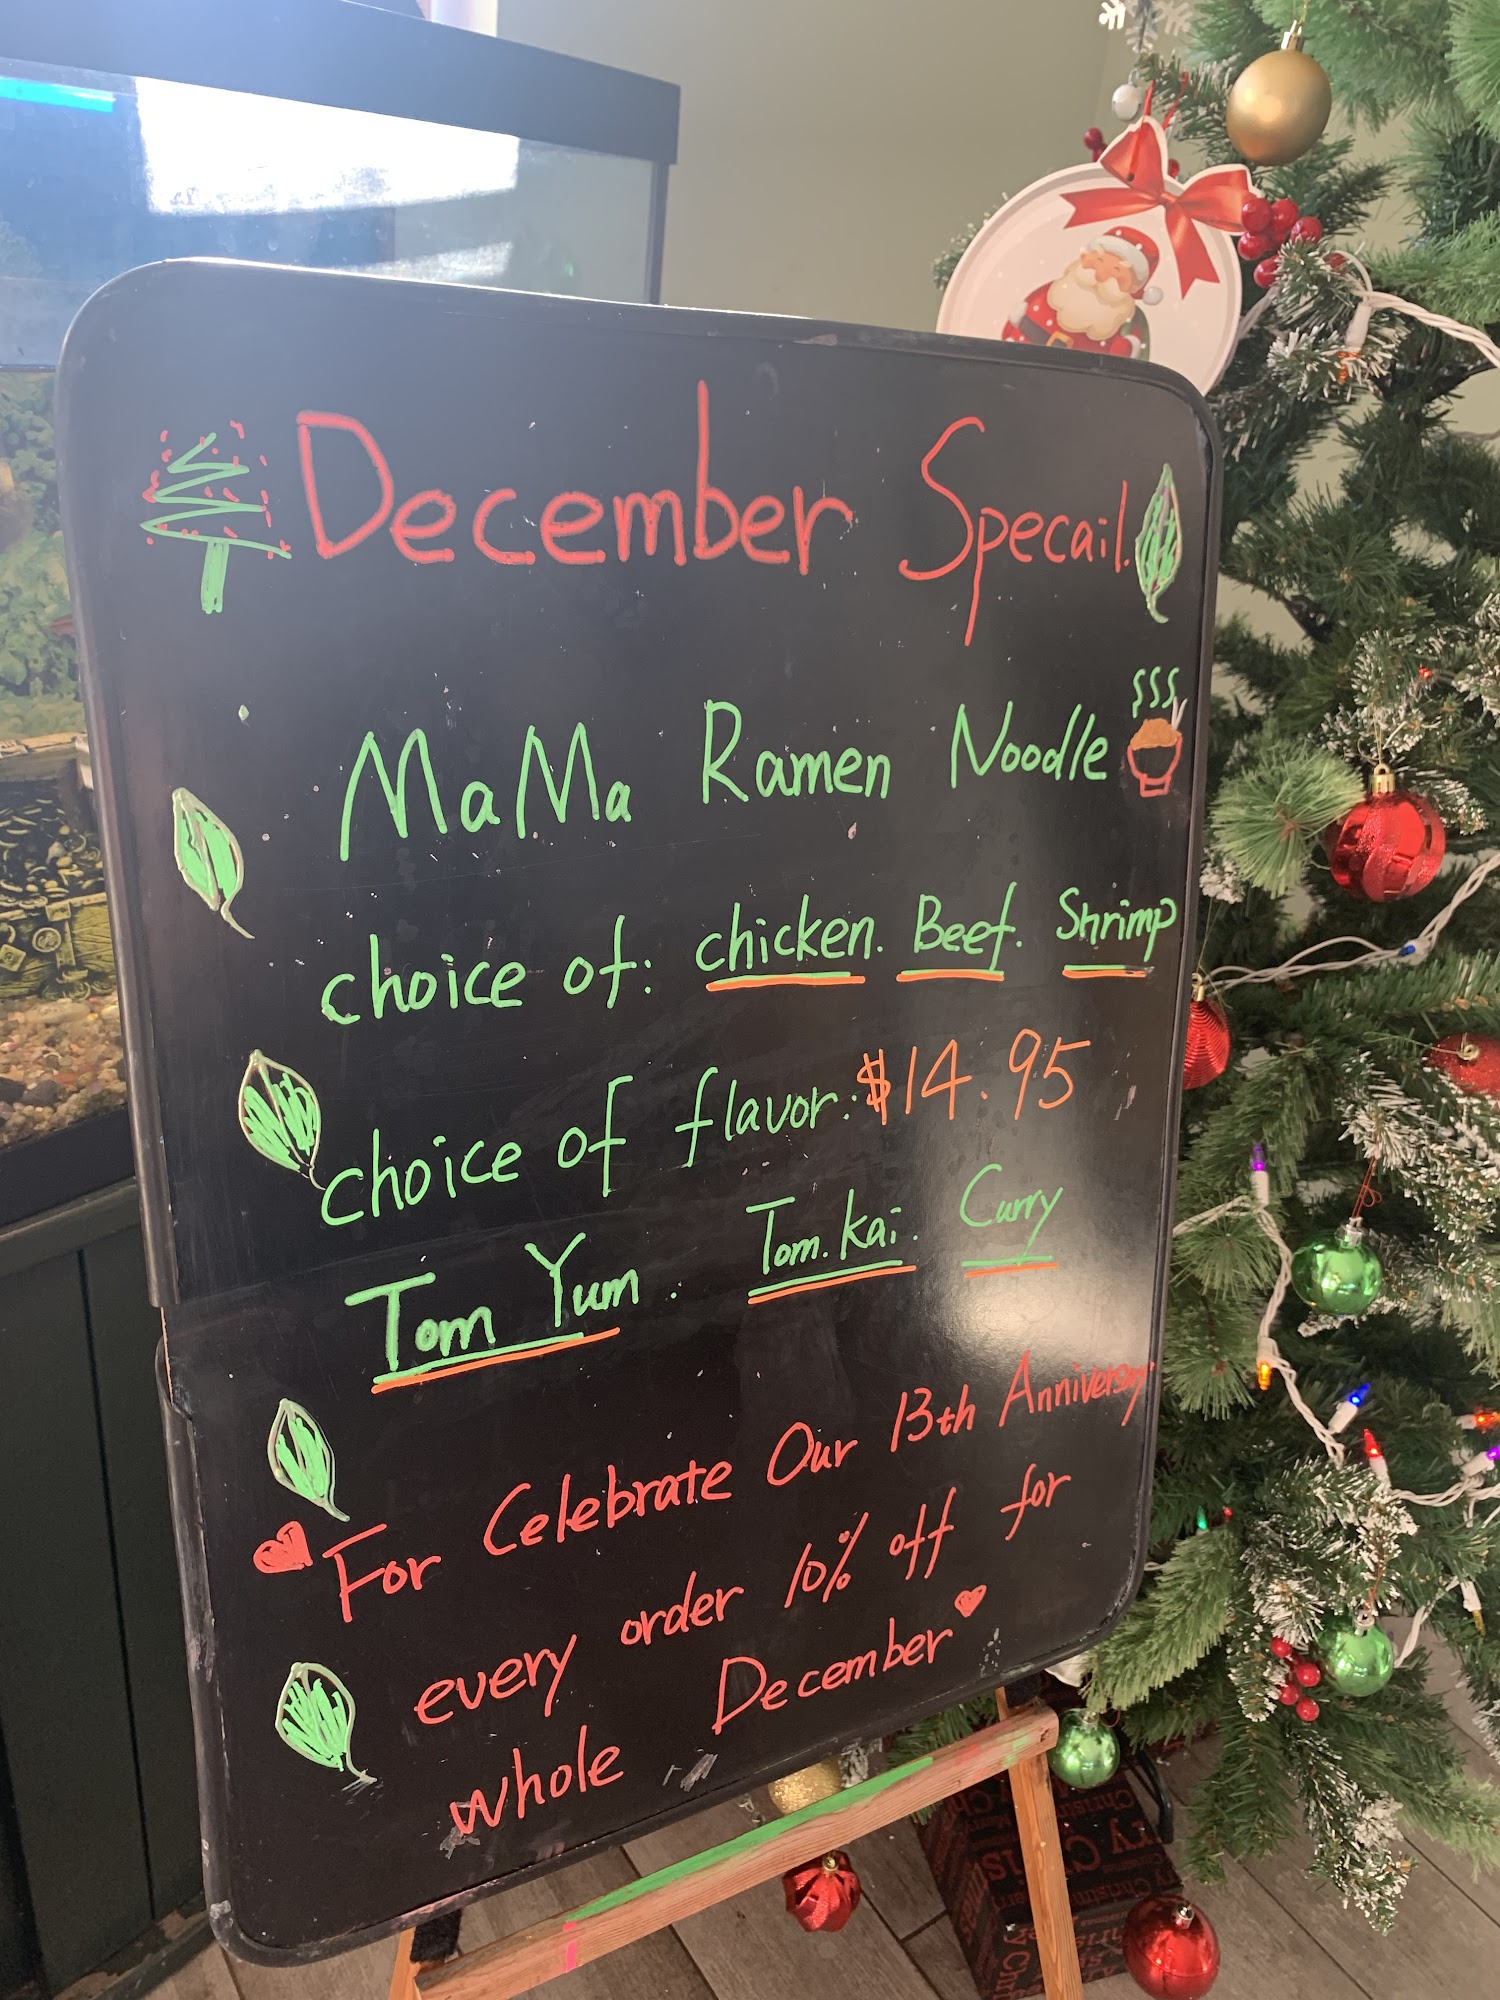 December Specail.
MaMa Ramen Noodle
choice of: chicken. Beef. Shrimp
choice of flavor: $14.95
Tom Yum. Tom.Kai. Curry
For Celebrate Our 13th Anniversary
every order 10% off for
whole December